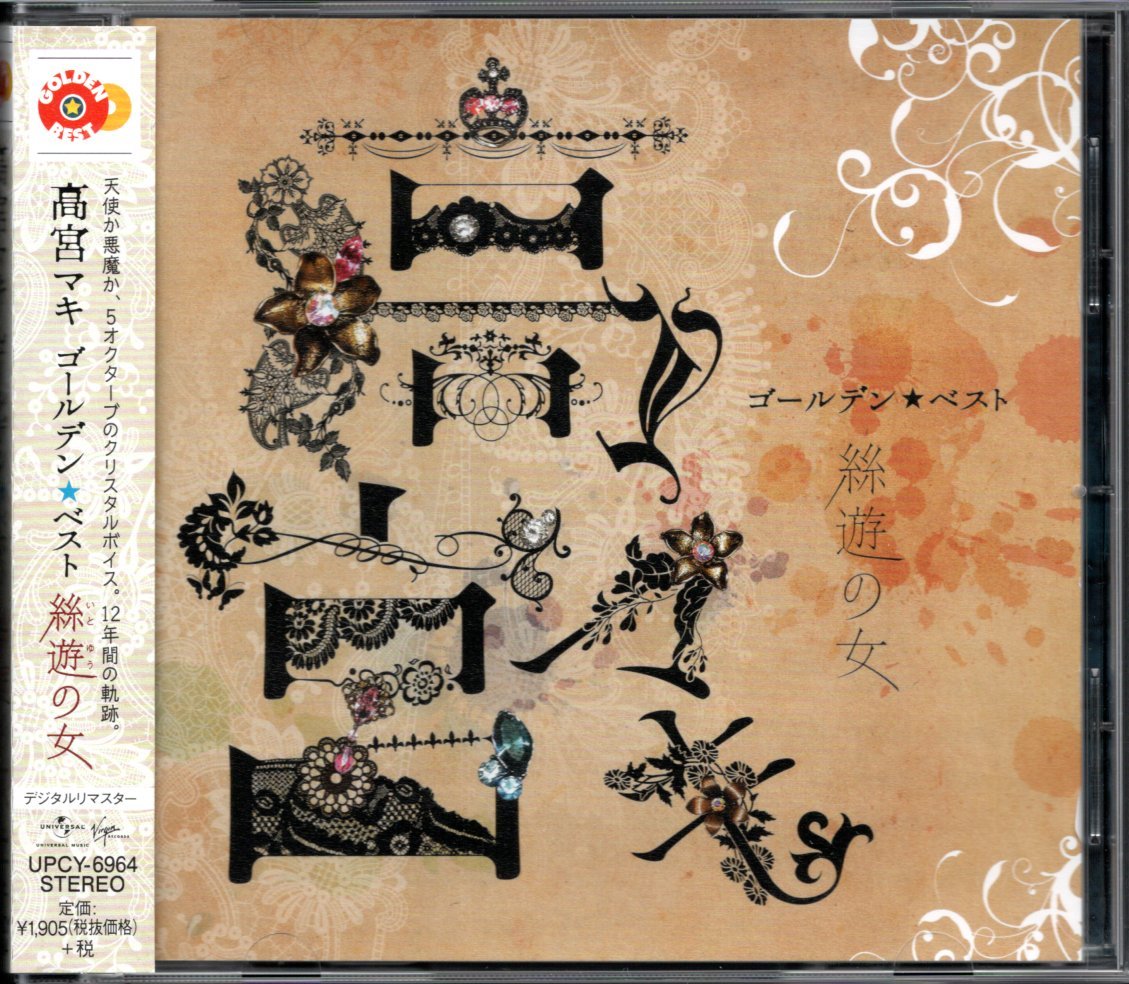 GOLDEN
BEST
天使か悪魔か、5オクターブのクリスタルボイス。12年間の軌跡。
髙宮マキ ゴールデン★ベスト 絲遊の女
いとゆう
デジタルリマスター
UNIVERSAL
UNIVERSAL MUSIC
Virgin
RECORDS
UPCY-6964
STEREO
定価:
¥1,905(税抜価格)
+税
髙宮
マキ
ゴールデン★ベスト
絲遊の女